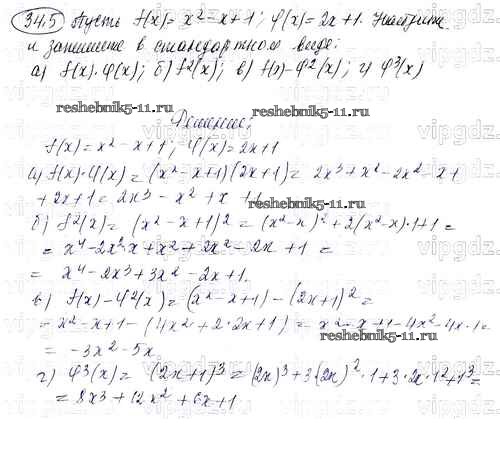 34.5 Пусть f(x) = x² - x + 1; φ(x) = 2x + 1. Найдите
и запишите в стандартном виде:
а) f(x)·φ(x); б) f²(x); в) f(x) - φ²(x); г) φ³(x)
reshebnik5-11.ru reshebnik5-11.ru
Решение:
f(x) = x² - x + 1; φ(x) = 2x + 1
а) f(x)·φ(x) = (x² - x + 1)(2x + 1) = 2x³ + x² - 2x² - x +
+ 2x + 1 = 2x³ - x² + x + 1
б) f²(x) = (x² - x + 1)² = (x² - x)² + 2(x² - x)·1 + 1 =
= x⁴ - 2x²·x + x² + 2x² - 2x + 1 =
= x⁴ - 2x³ + 3x² - 2x + 1.
в) f(x) - φ²(x) = (x² - x + 1) - (2x + 1)² =
= x² - x + 1 - (4x² + 2·2x + 1) = x² - x + 1 - 4x² - 4x - 1 =
= -3x² - 5x
reshebnik5-11.ru reshebnik5-11.ru
г) φ³(x) = (2x + 1)³ = (2x)³ + 3·(2x)²·1 + 3·2x·1² + 1³ =
= 8x³ + 12x² + 6x + 1
vipgdz